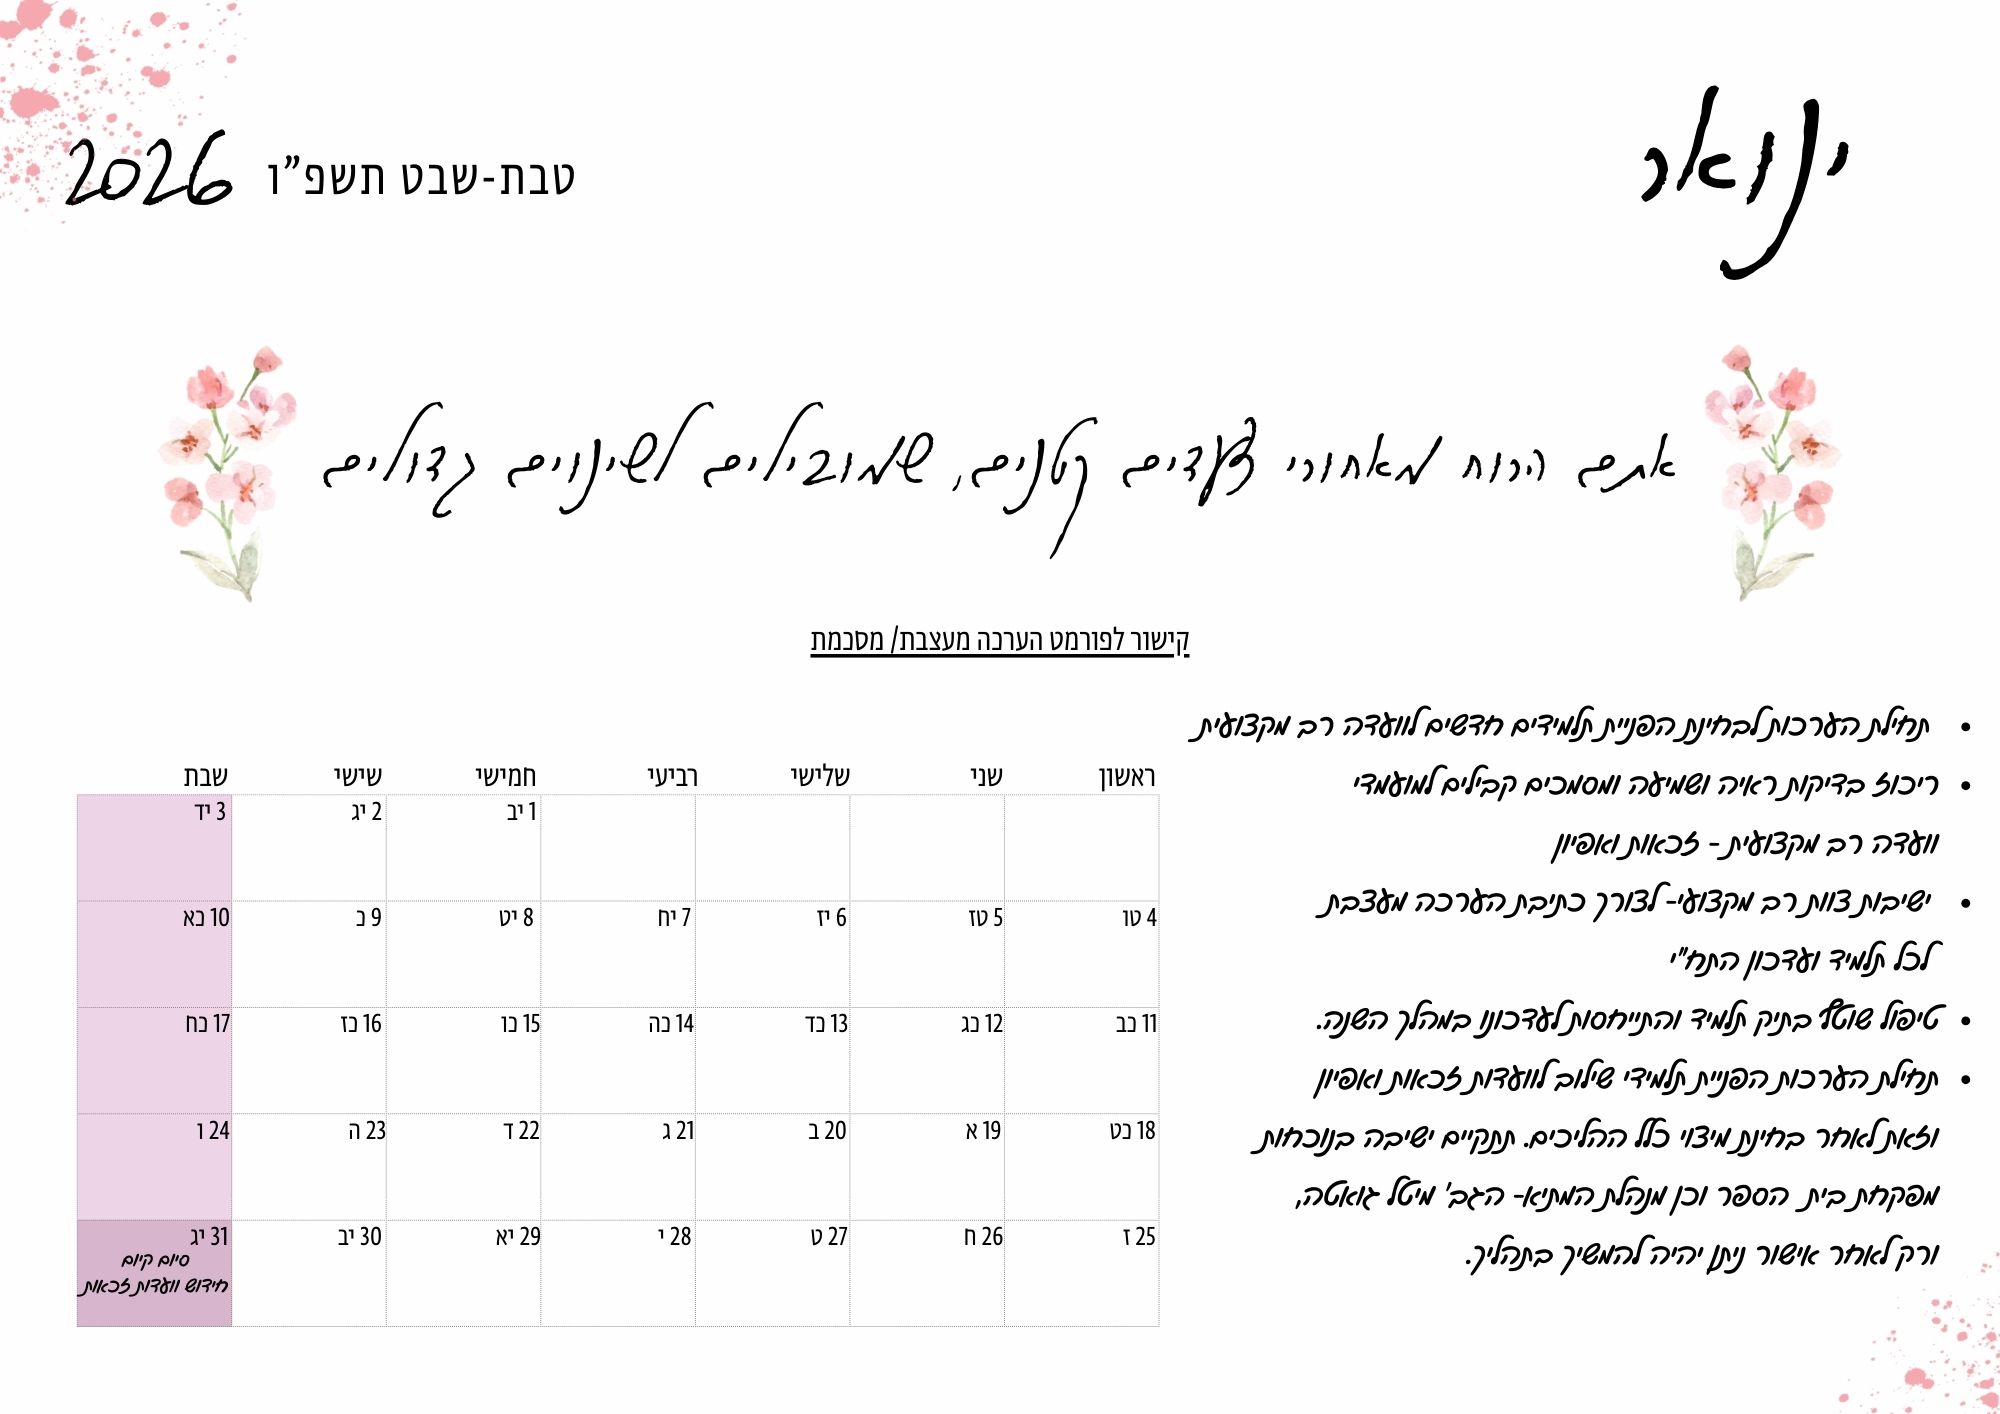 ינואר
טבת-שבט תשפ"ו 2026
אתם הרוח מאחורי צעדים קטנים, שמובילים לשינוים גדולים
קישור לפורמט הערכה מעצבת/ מסכמת
• תחילת הערכות לבחינת הפניית תלמידים חדשים לוועדה רב מקצועית
• ריכוז בדיקות ראיה ושמיעה ומסמכים קבילים למועמדי
וועדה רב מקצועית - זכאות ואפיון
• ישיבות צוות רב מקצועי- לצורך כתיבת הערכה מעצבת
לכל תלמיד ועדכון התח"י
• טיפול שוטף בתיק תלמיד והתייחסות לעדכונו במהלך השנה.
• תחילת הערכות הפניית תלמידי שילוב לוועדות זכאות ואפיון
וזאת לאחר בחינת מיצוי כלל ההליכים. תתקיים ישיבה בנוכחות
מפקחת בית הספר וכן מנהלת המתיא- הגב' מיטל גואטה,
ורק לאחר אישור ניתן יהיה להמשיך בתהליך.
ראשון שני שלישי רביעי חמישי שישי שבת
1 יב 2 יג 3 יד
4 טו 5 טז 6 יז 7 יח 8 יט 9 כ 10 כא
11 כב 12 כג 13 כד 14 כה 15 כו 16 כז 17 כח
18 כט 19 א 20 ב 21 ג 22 ד 23 ה 24 ו
25 ז 26 ח 27 ט 28 י 29 יא 30 יב 31 יג
סיום קיום
חידוש וועדות זכאות